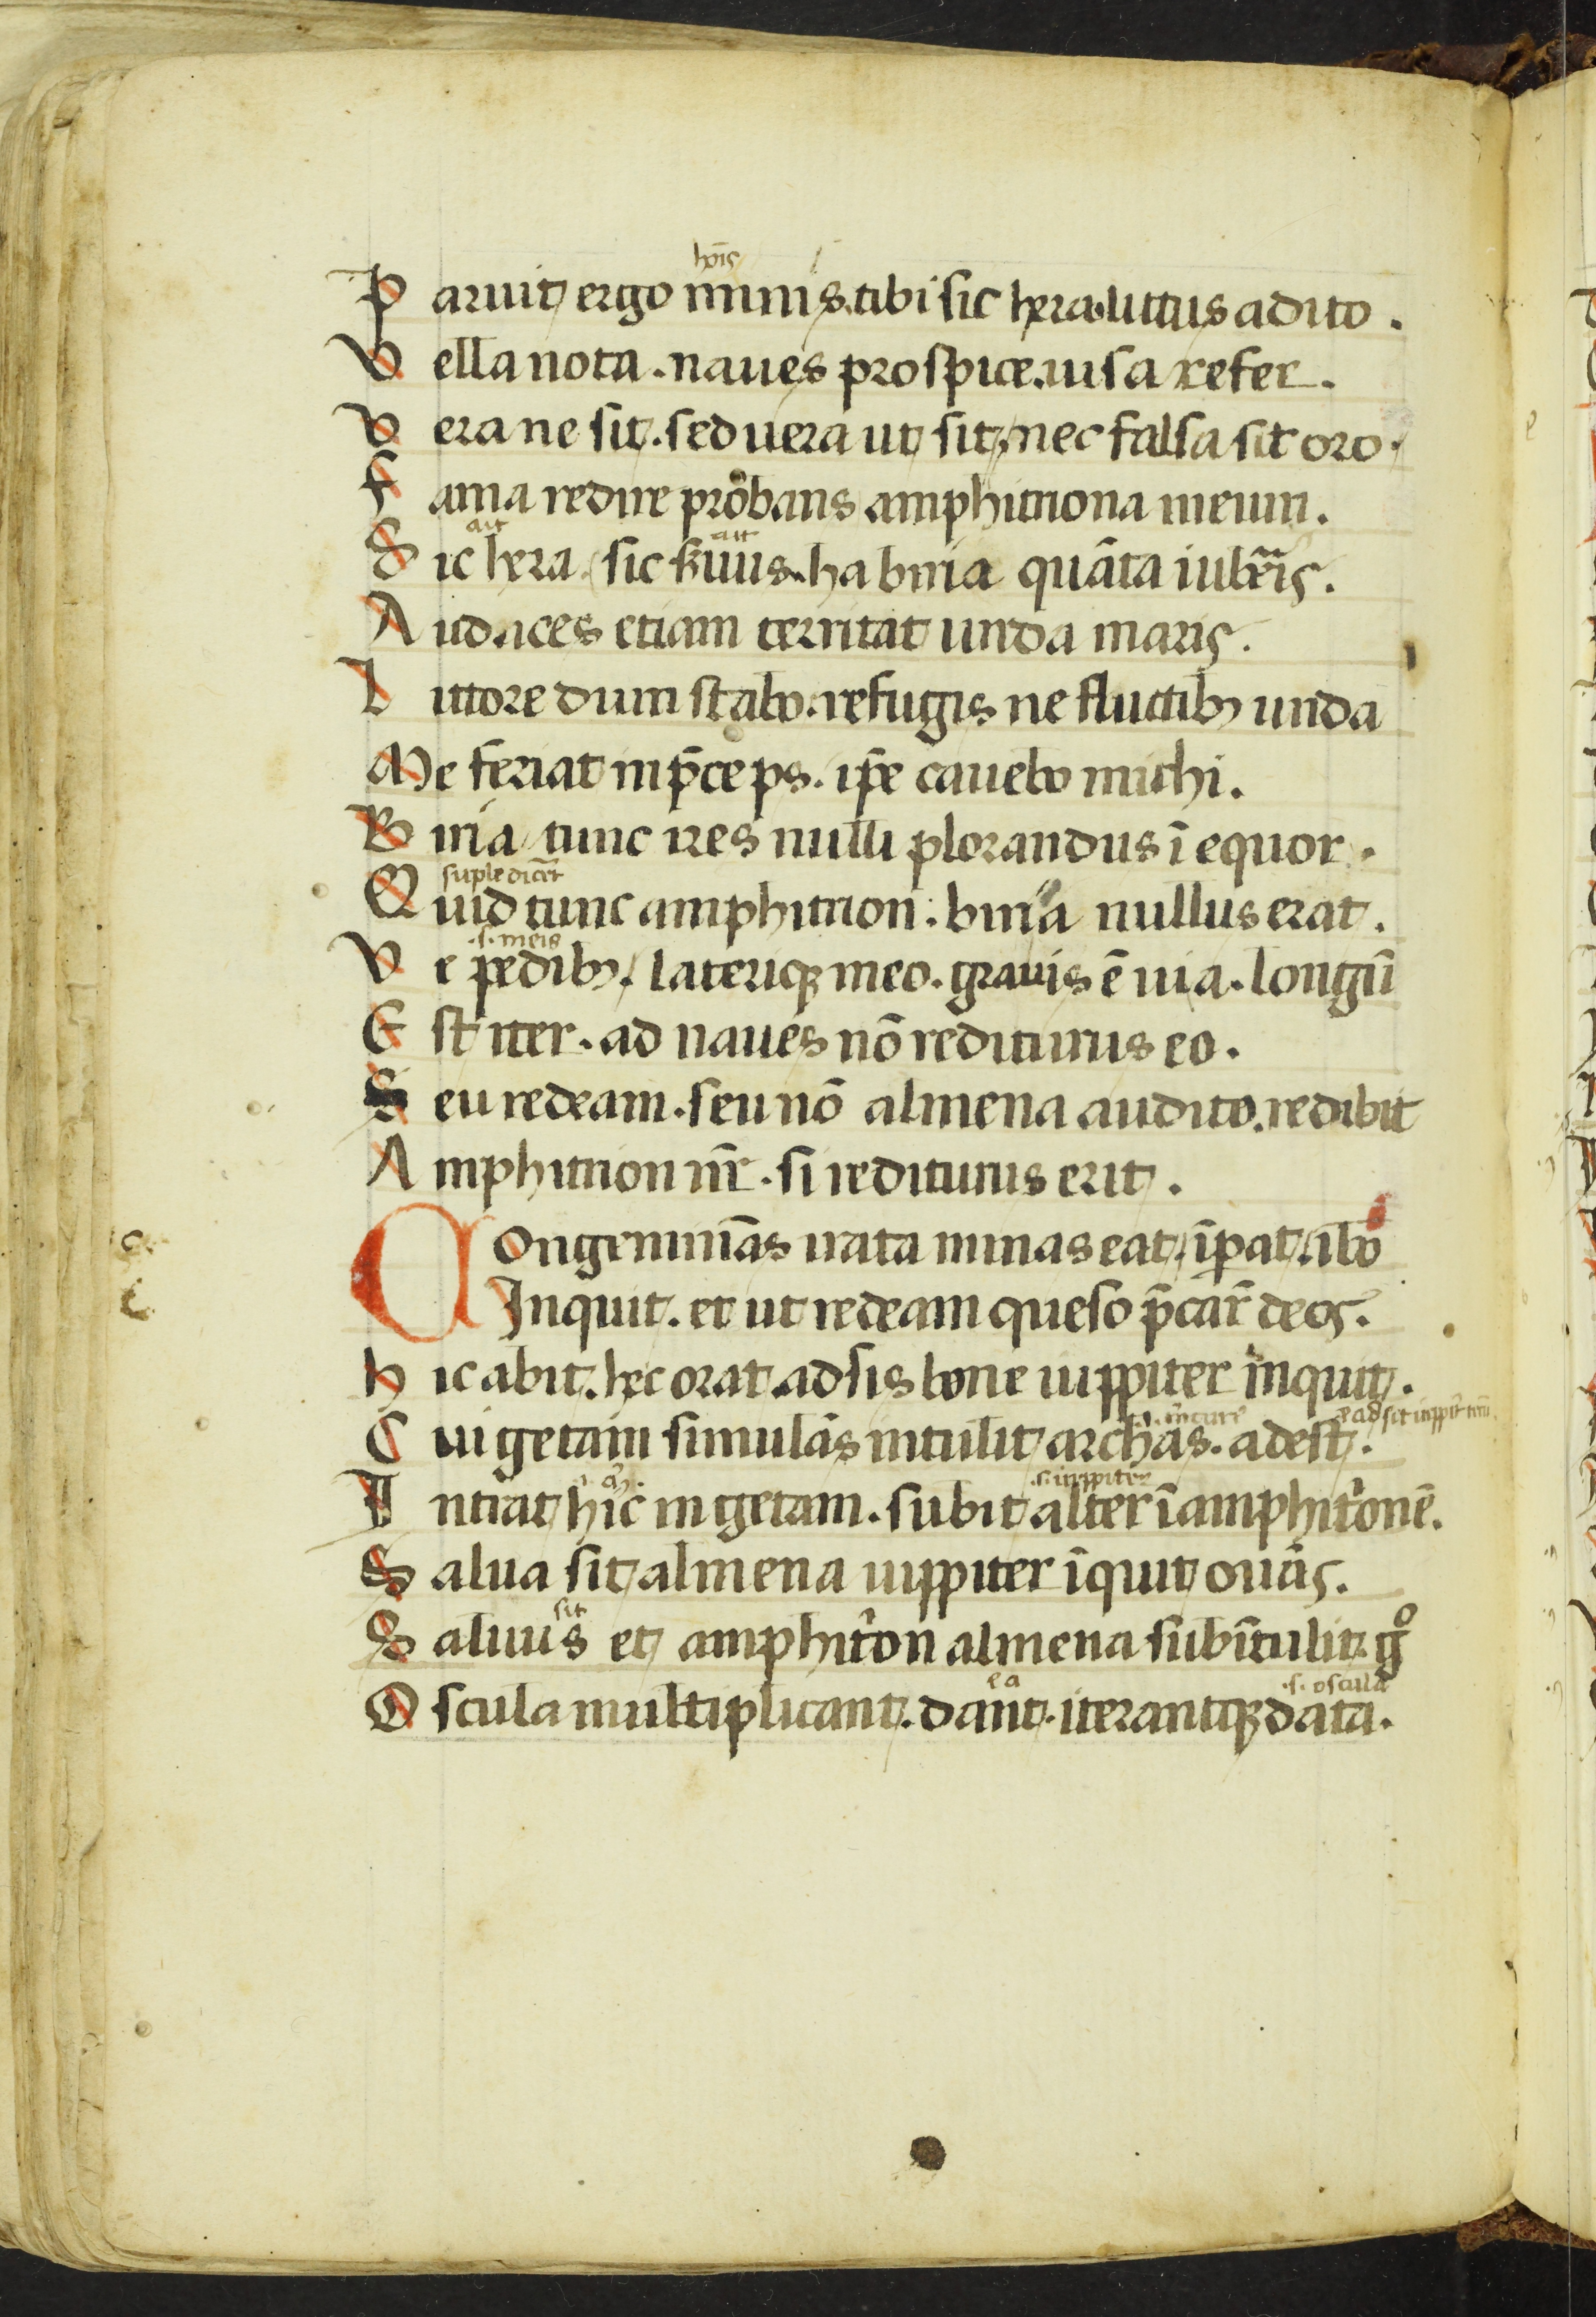 hōis
Paruit ergo minis. tibi sic hera. littus adito.
Vella nota. naues prospice. uisa refer.
Vera ne sit. sed uera ut sit. nec falsa sit oro.
Fama redire probans amphitriona meum.
ait ait
Sic hera. sic suus. ha birria quāta iubēis.
Audaces etiam territat unda maris.
Littore dum stabo. refugis ne fluctibꝫ unda
Me feriat in p̄ceps. ip̄e cauebo michi.
Birria tunc ires nulli plorandus ī equor.
suple diceret
Quid tunc amphitrion. birria nullus erat.
.s. meis
Ve pedibꝫ. lateriqꝫ meo. grauis ē uia. longū
Est iter. ad naues nō rediturus eo.
Seu redeam. seu nō almena audito. redibit
Amphitrion nr̄. si rediturus erit.
Congeminās irata minas eat. īpat. ibo
Inquit. et ut redeam queso p̄car̄ deos.
Hic abit. hec orat. adsis bone iuppiter inquit.
Cui getam simulās intulit archas. adest.
.s. iuppiter
Intrat hic in getam. subit alter ī amphitͥonē.
Salua sit almena iuppiter īquit ouās.
sit
Saluus et amphitͥon almena subītulit. gͦ
ea .s. oscula
Oscula multiplicant. dant. iterantqꝫ data.